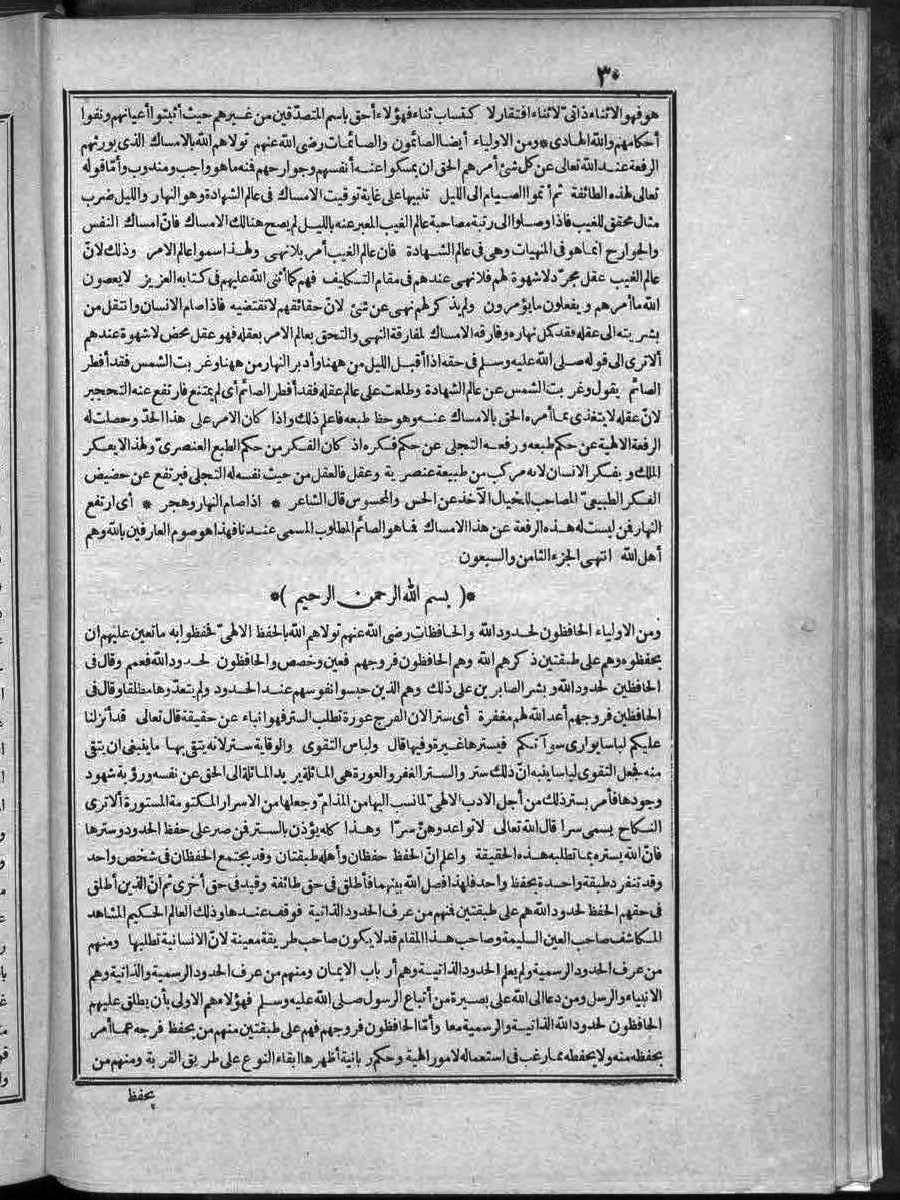 ٣٠
هو فهو الاثناء ذاتىّ لاثناء افتقار لا كتساب ثناء فهؤلاء أحق باسم المتصدّقين من غيرهم حيث أثبتوا أعيانهم ونفوا
أحكامهم والله الهادى * ومن الاولياء أيضا الصائمون والصائمات رضى الله عنهم تولاهم الله بالامساك الذى يورثهم
الرفعة عند الله تعالى عن كل شئ أمرهم الحق ان يمسكوا عنه أنفسهم وجوارحهم فنه ماهو واجب ومندوب وأمّا قوله
تعالى لهذه الطائفة ثم أتموا الصيام الى الليل تنبيها على غاية توقيت الامساك فى عالم الشهادة وهو النهار والليل ضرب
مثال محقق للغيب فاذا وصلوا الى رتبة مصاحبة عالم الغيب المعبر عنه بالليل لم يصح هنالك الامساك فانّ امساك النفس
والجوارح انما هو فى المنهيات وهى فى عالم الشهادة فان عالم الغيب أمر بلا نهى ولهذا سموا عالم الامر وذلك لانّ
عالم الغيب عقل مجرّد لا شهوة لهم فلا نهى عندهم فى مقام التكليف فهم كما أثنى الله عليهم فى كتابه العزيز لا يعصون
الله ما أمرهم ويفعلون ما يؤمرون ولم يذكر لهم نهى عن شئ لانّ حقائقهم لا تقتضيه فاذا صام الانسان وانتقل من
بشريته الى عقله فقد كمل نهاره وفارقه الامساك لمفارقة النهى والتحق بعالم الامر بعقله فهو عقل محض لا شهوة عندهم
ألا ترى الى قوله صلى الله عليه وسلم فى حقه اذا أقبل الليل من ههنا وأدبر النهار من ههنا وغربت الشمس فقد أفطر
الصائم يقول وغربت الشمس عن عالم الشهادة وطلعت على عالم عقله فقد أفطر الصائم أى لم يمتنع فارتفع عنه التحجير
لانّ عقله لا يتغذى بما أمره الحق بالامساك عنه وهو حظ طبعه فاعلم ذلك واذا كان الامر على هذا الحدّ وحصلت له
الرفعة الالهية عن حكم طبعه ورفعه التجلى عن حكم فكره اذ كان الفكر من حكم الطبع العنصرىّ ولهذا لا يفكر
الملك ويفكر الانسان لانه مركب من طبيعة عنصرية وعقل فالعقل من حيث نفسه له التجلى فيرتفع عن حضيض
الفكر الطبيعىّ المصاحب للخيال الآخذ عن الحس والمحسوس قال الشاعر * اذا صام النهار وهجر * أى ارتفع
النهار فن ليست له هذه الرفعة عن هذا الامساك فما هو الصائم المطلوب المسمى عندنا فهذا هو صوم العارفين بالله وهم
أهل الله انتهى الجزء الثامن والسبعون
*( بسم الله الرحمن الرحيم )*
ومن الاولياء الحافظون لحدود الله والحافظات رضى الله عنهم تولاهم الله بالحفظ الالهىّ فحفظوا به ما تعين عليهم ان
يحفظوه وهم على طبقتين ذكرهم الله وهم الحافظون فروجهم فعين وخصص والحافظون لحدود الله فعمم وقال فى
الحافظين لحدود الله وبشر الصابرين على ذلك وهم الذين حبسوا نفوسهم عند الحدود ولم يتعدّوها مطلقا وقال فى
الحافظين فروجهم أعد الله لهم مغفرة أى سترا لان الفرج عورة تطلب الستر فهو انباء عن حقيقة قال تعالى قد أنزلنا
عليكم لباسا يوارى سوآتكم فيسترها غيرة وفيها قال ولباس التقوى والوقاية ستر لانه يتقى بها ما ينبغى ان يتقى
منه فجعل التقوى لباسا ينبه انّ ذلك ستر والستر الغفر والعورة هى المائلة يريد المائلة الى الحق عن نفسه ورؤية شهود
وجودها فأمر بستر ذلك من أجل الادب الالهىّ لما نسب اليها من المذامّ وجعلها من الاسرار المكتومة المستورة ألا ترى
النكاح يسمى سرا قال الله تعالى لا تواعدوهنّ سرّا وهذا كله يؤذن بالستر فن صبر على حفظ الحدود وسترها
فانّ الله يستره بما تطلبه هذه الحقيقة واعلم انّ الحفظ حفظان وأهله طبقتان وقد يجتمع الحفظان فى شخص واحد
وقد تنفرد طبقة واحدة بحفظ واحد فلهذا فصل الله بينهما فأطلق فى حق طائفة وقيد فى حق أخرى ثم انّ الذين أطلق
فى حقهم الحفظ لحدود الله هم على طبقتين فنهم من عرف الحدود الذاتية فوقف عندها وذلك العالم الحكيم المشاهد
المكاشف صاحب العين السليمة وصاحب هذا المقام قد لا يكون صاحب طريقة معينة لانّ الانسانية تطلبها ومنهم
من عرف الحدود الرسمية ولم يعلم الحدود الذاتية وهم أرباب الايمان ومنهم من عرف الحدود الرسمية والذاتية وهم
الانبياء والرسل ومن دعا الى الله على بصيرة من أتباع الرسول صلى الله عليه وسلم فهؤلاء هم الاولى بأن يطلق عليهم
الحافظون لحدود الله الذاتية والرسمية معا وأمّا الحافظون فروجهم فهم على طبقتين منهم من يحفظ فرجه عما أمر
بحفظه منه ولا يحفظه مما رغب فى استعماله لامور الهية وحكم ربانية أظهرها ابقاء النوع على طريق القربة ومنهم من
يحفظ